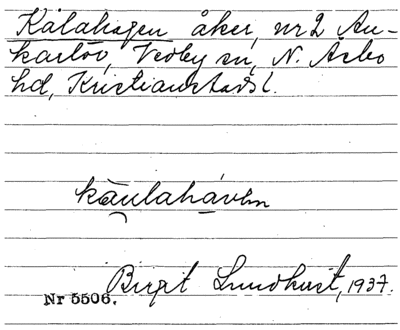 Kålahagen åker, nr 2 An-
karlöv, Vedby sn, N. Åsbo
hd, Kristianstads l.
kàulahávən
Birgit Lundkvist, 1937.
Nr 5506.